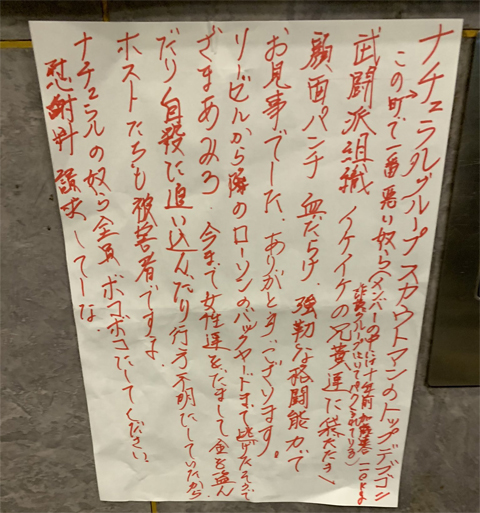 ナチュラルグループスカウトマンのトップデブゴン
この町で一番悪い奴ら(メンバーの中には十年前
武闘派組織 イケイケの兄貴達に袋だたき、
顔面パンチ 血だらけ、強靭な格闘能力で
お見事でした、ありがとうございます。
リービルから隣のローソンのバックヤードまで逃げたそうで
ざまあみろ 今まで女性達をだまして金を盗ん
だり自殺に追い込んだり行方不明にしていたから
ホストたちも被害者ですよ
ナチュラルの奴ら全員 ボコボコにしてください
慰謝料 請求してーな、